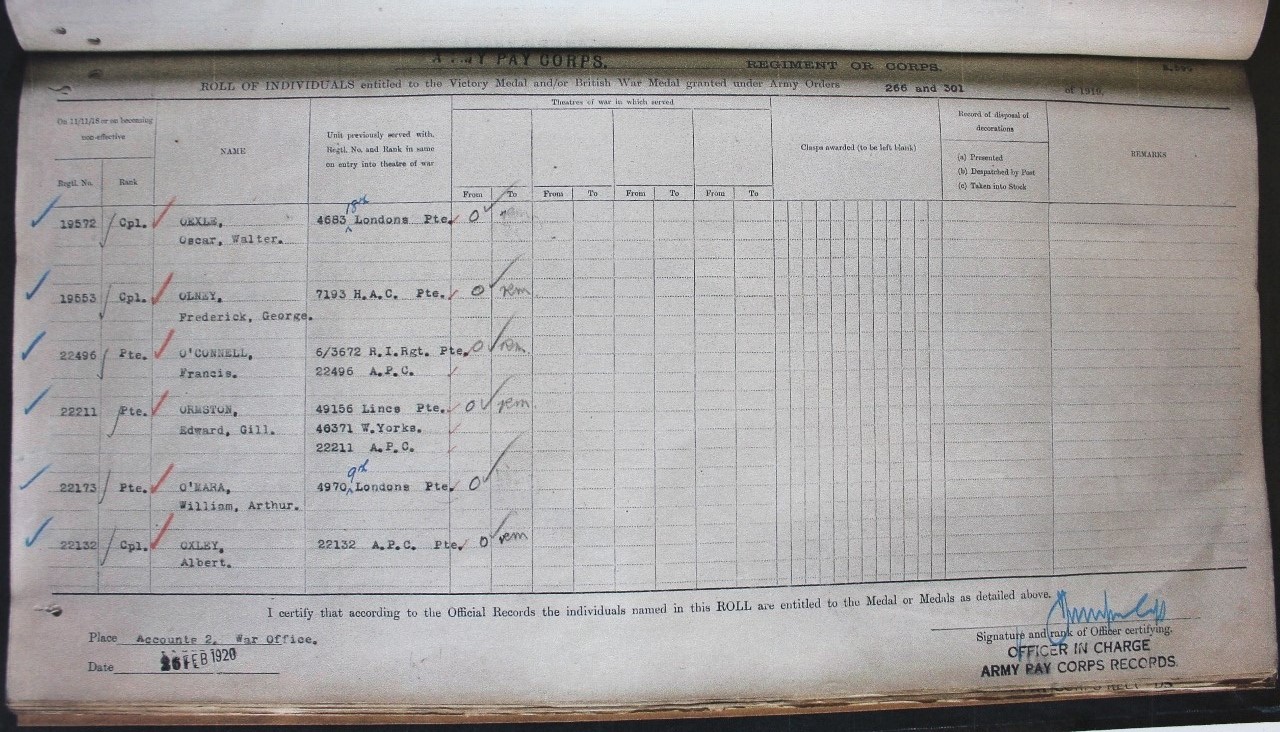 ARMY PAY CORPS. REGIMENT OR CORPS.
ROLL OF INDIVIDUALS entitled to the Victory Medal and/or British War Medal granted under Army Orders 266 and 301 of 1919.
On 11/11/18 or on becoming non-effective
Regtl. No. Rank
NAME
Unit previously served with, Regtl. No. and Rank in same on entry into theatre of war
Theatres of war in which served
From To From To From To From To
Clasps awarded (to be left blank)
Record of disposal of decorations
(a) Presented
(b) Despatched by Post
(c) Taken into Stock
REMARKS
18th
19572 Cpl. OEXLE, 4683 Londons Pte. 0
Oscar, Walter.
19553 Cpl. OLNEY, 7193 H.A.C. Pte. 0 rem
Frederick, George.
22496 Pte. O'CONNELL, 6/3672 R.I.Rgt. Pte. 0 rem.
Francis. 22496 A.P.C.
22211 Pte. ORMSTON, 49156 Lincs Pte. 0 rem
Edward, Gill. 46371 W.Yorks.
22211 A.P.C.
9th
22173 Pte. O'MARA, 4970 Londons Pte. 0
William, Arthur.
22132 Cpl. OXLEY, 22132 A.P.C. Pte. 0 rem
Albert.
I certify that according to the Official Records the individuals named in this ROLL are entitled to the Medal or Medals as detailed above.
Place Accounts 2, War Office.
Date 26 FEB 1920
Signature and rank of Officer certifying.
OFFICER IN CHARGE
ARMY PAY CORPS RECORDS.